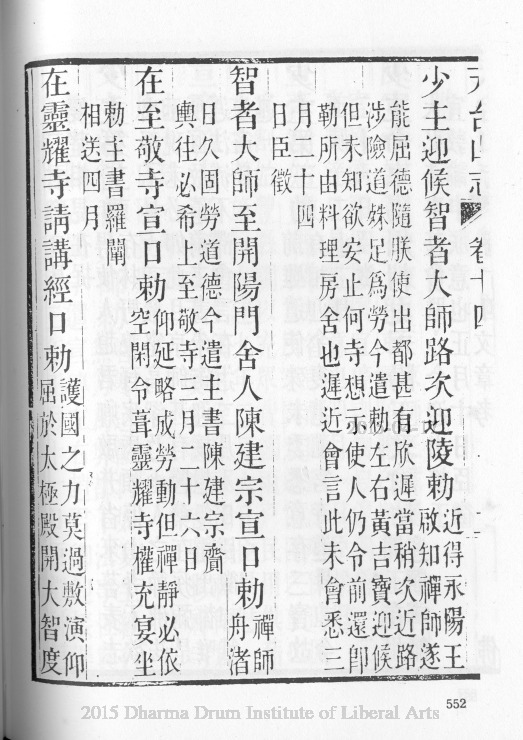 天台山志 卷十四
少主迎候智者大師路次迎陵勅近得永陽王
啟知禪師遂
能屈德隨朕使出都甚有欣遲當稍次近路
涉險道姝足爲勞今遣勅左右黃吉寶迎候
但未知欲安止何寺想示使人仍令前還卽
勒所由料理房舍也遲近會言此未會悉三
月二十四
日臣徵
智者大師至開陽門舍人陳建宗宣口勅禪師
舟渚
日久固勞道德今遣主書陳建宗齎
輿往必希上至敬寺三月二十六日
在至敬寺宣口勅仰延略成勞動但禪靜必依
空閑令葺靈耀寺權充宴坐
勅主書羅闡
相送四月
在靈耀寺請講經口勅護國之力莫過敷演仰
屈於太極殿開大智度
552
2015 Dharma Drum Institute of Liberal Arts